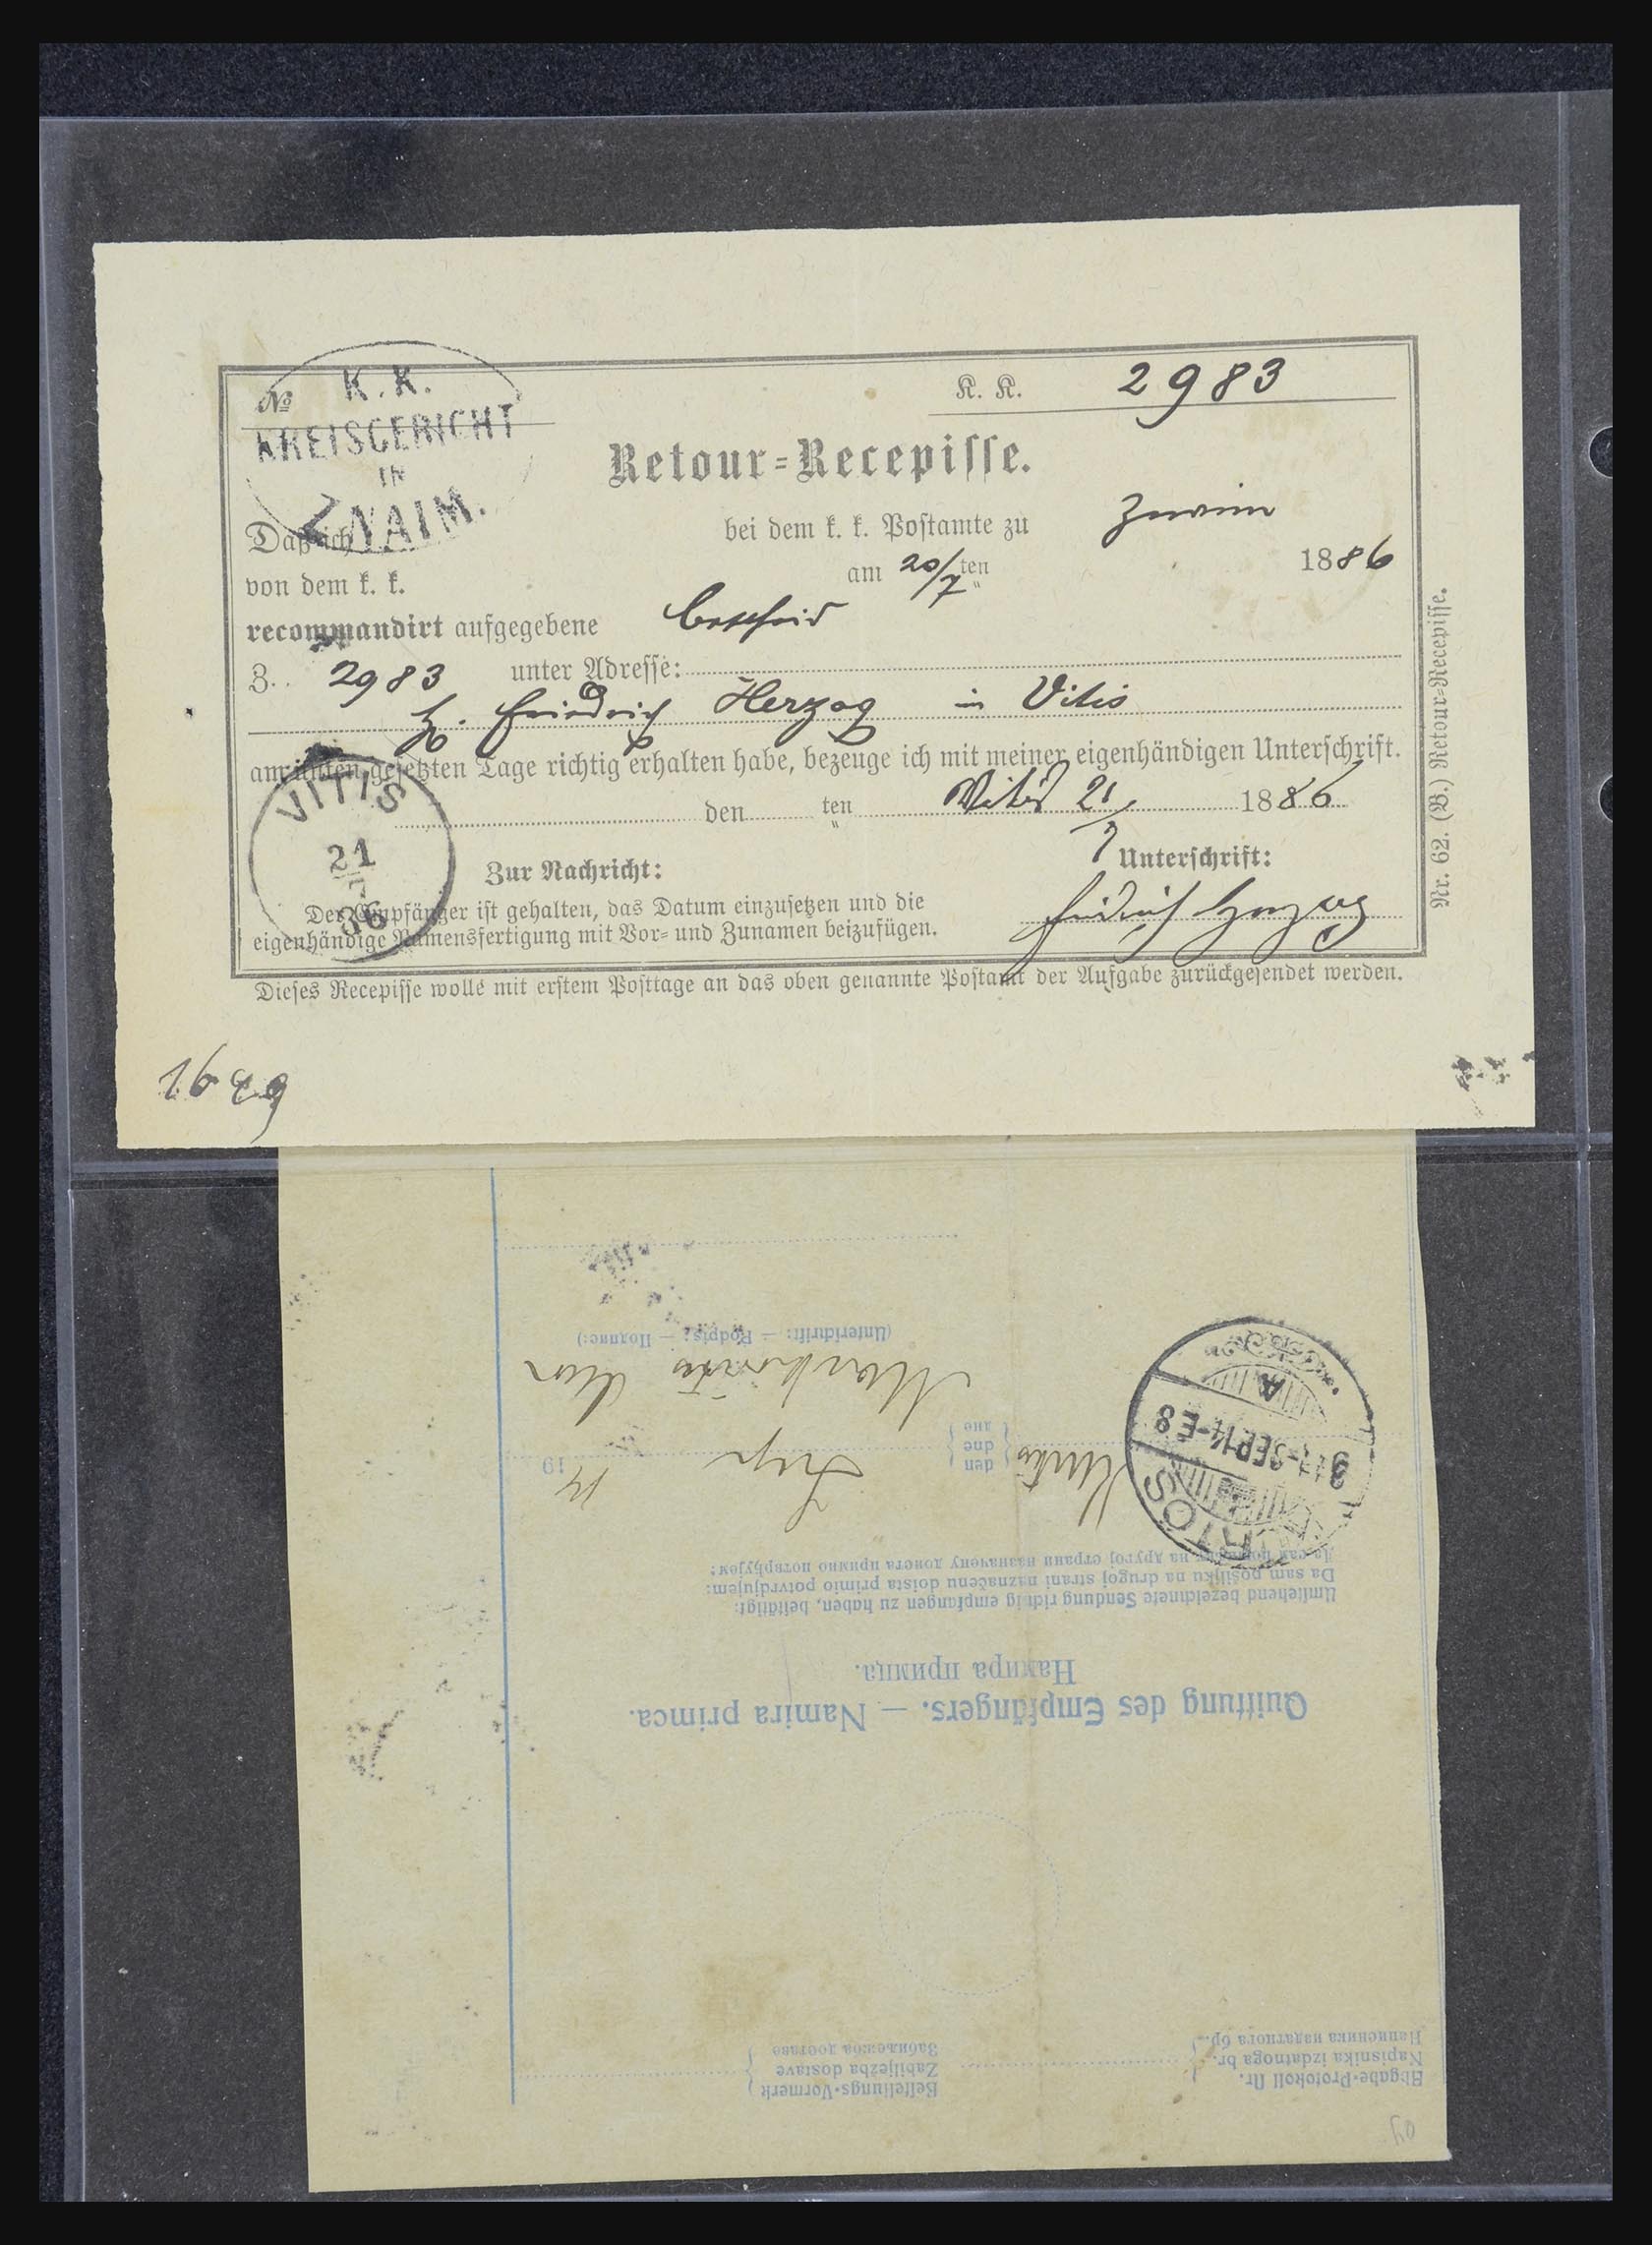 №
K. K.
KREISGERICHT
IN
ZNAIM.
K. K. 2983
Retour=Recepisse.
Daß ich bei dem k. k. Postamte zu Znaim
von dem k. k. am 20/7 ten 1886
recommandirt aufgegebene Bescheid
Z. 2983 unter Adresse:
H. Friedrich Herzog in Vitis
am unten gesetzten Tage richtig erhalten habe, bezeuge ich mit meiner eigenhändigen Unterschrift.
den ten Vitis 21/7 1886
VITIS
21
7
86
Zur Nachricht:
Unterschrift:
Der Empfänger ist gehalten, das Datum einzusetzen und die
eigenhändige Namensfertigung mit Vor= und Zunamen beizufügen.
Friedrich Herzog
Dieses Recepisse wolle mit erstem Posttage an das oben genannte Postamt der Aufgabe zurückgesendet werden.
Nr. 62. (B.) Retour=Recepisse.
Abgabe-Protokoll Nr.
Napisnika izdatnoga br.
Написника издатнога бр.
Bestellungs-Vormerk
Zabilježba dostave
Забиљежба доставе
Quittung des Empfängers. — Namira primca.
Намира примца.
Umstehend bezeichnete Sendung richtig empfangen zu haben, bestätigt:
Da sam pošiljku na drugoj strani naznačenu doista primio potvrdjujem:
Да сам пошиљку на другој страни назначену доиста примио потврђујем:
den
dne
дне
19 14
SEP 14-E8
A
(Unterschrift: — Podpis: — Подпис:)